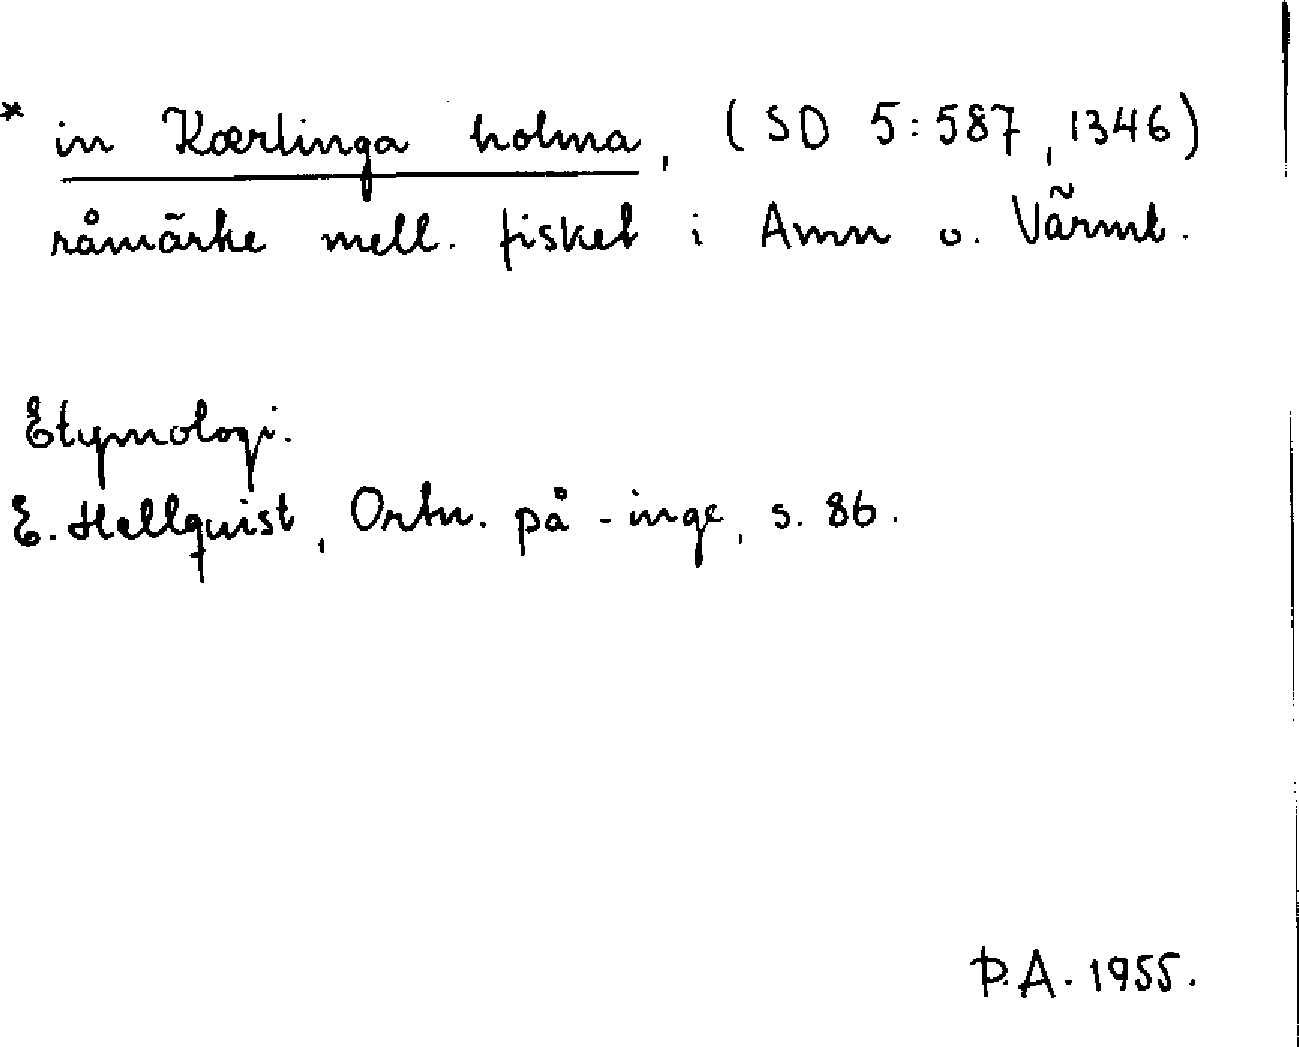 * in Kærlinga holma, (SD 5:587, 1346)
råmärke mell. fisket i Amn o. Värml.
Etymologi.
E. Hellquist, Ortn. på -inge, s. 86.
P.A. 1955.